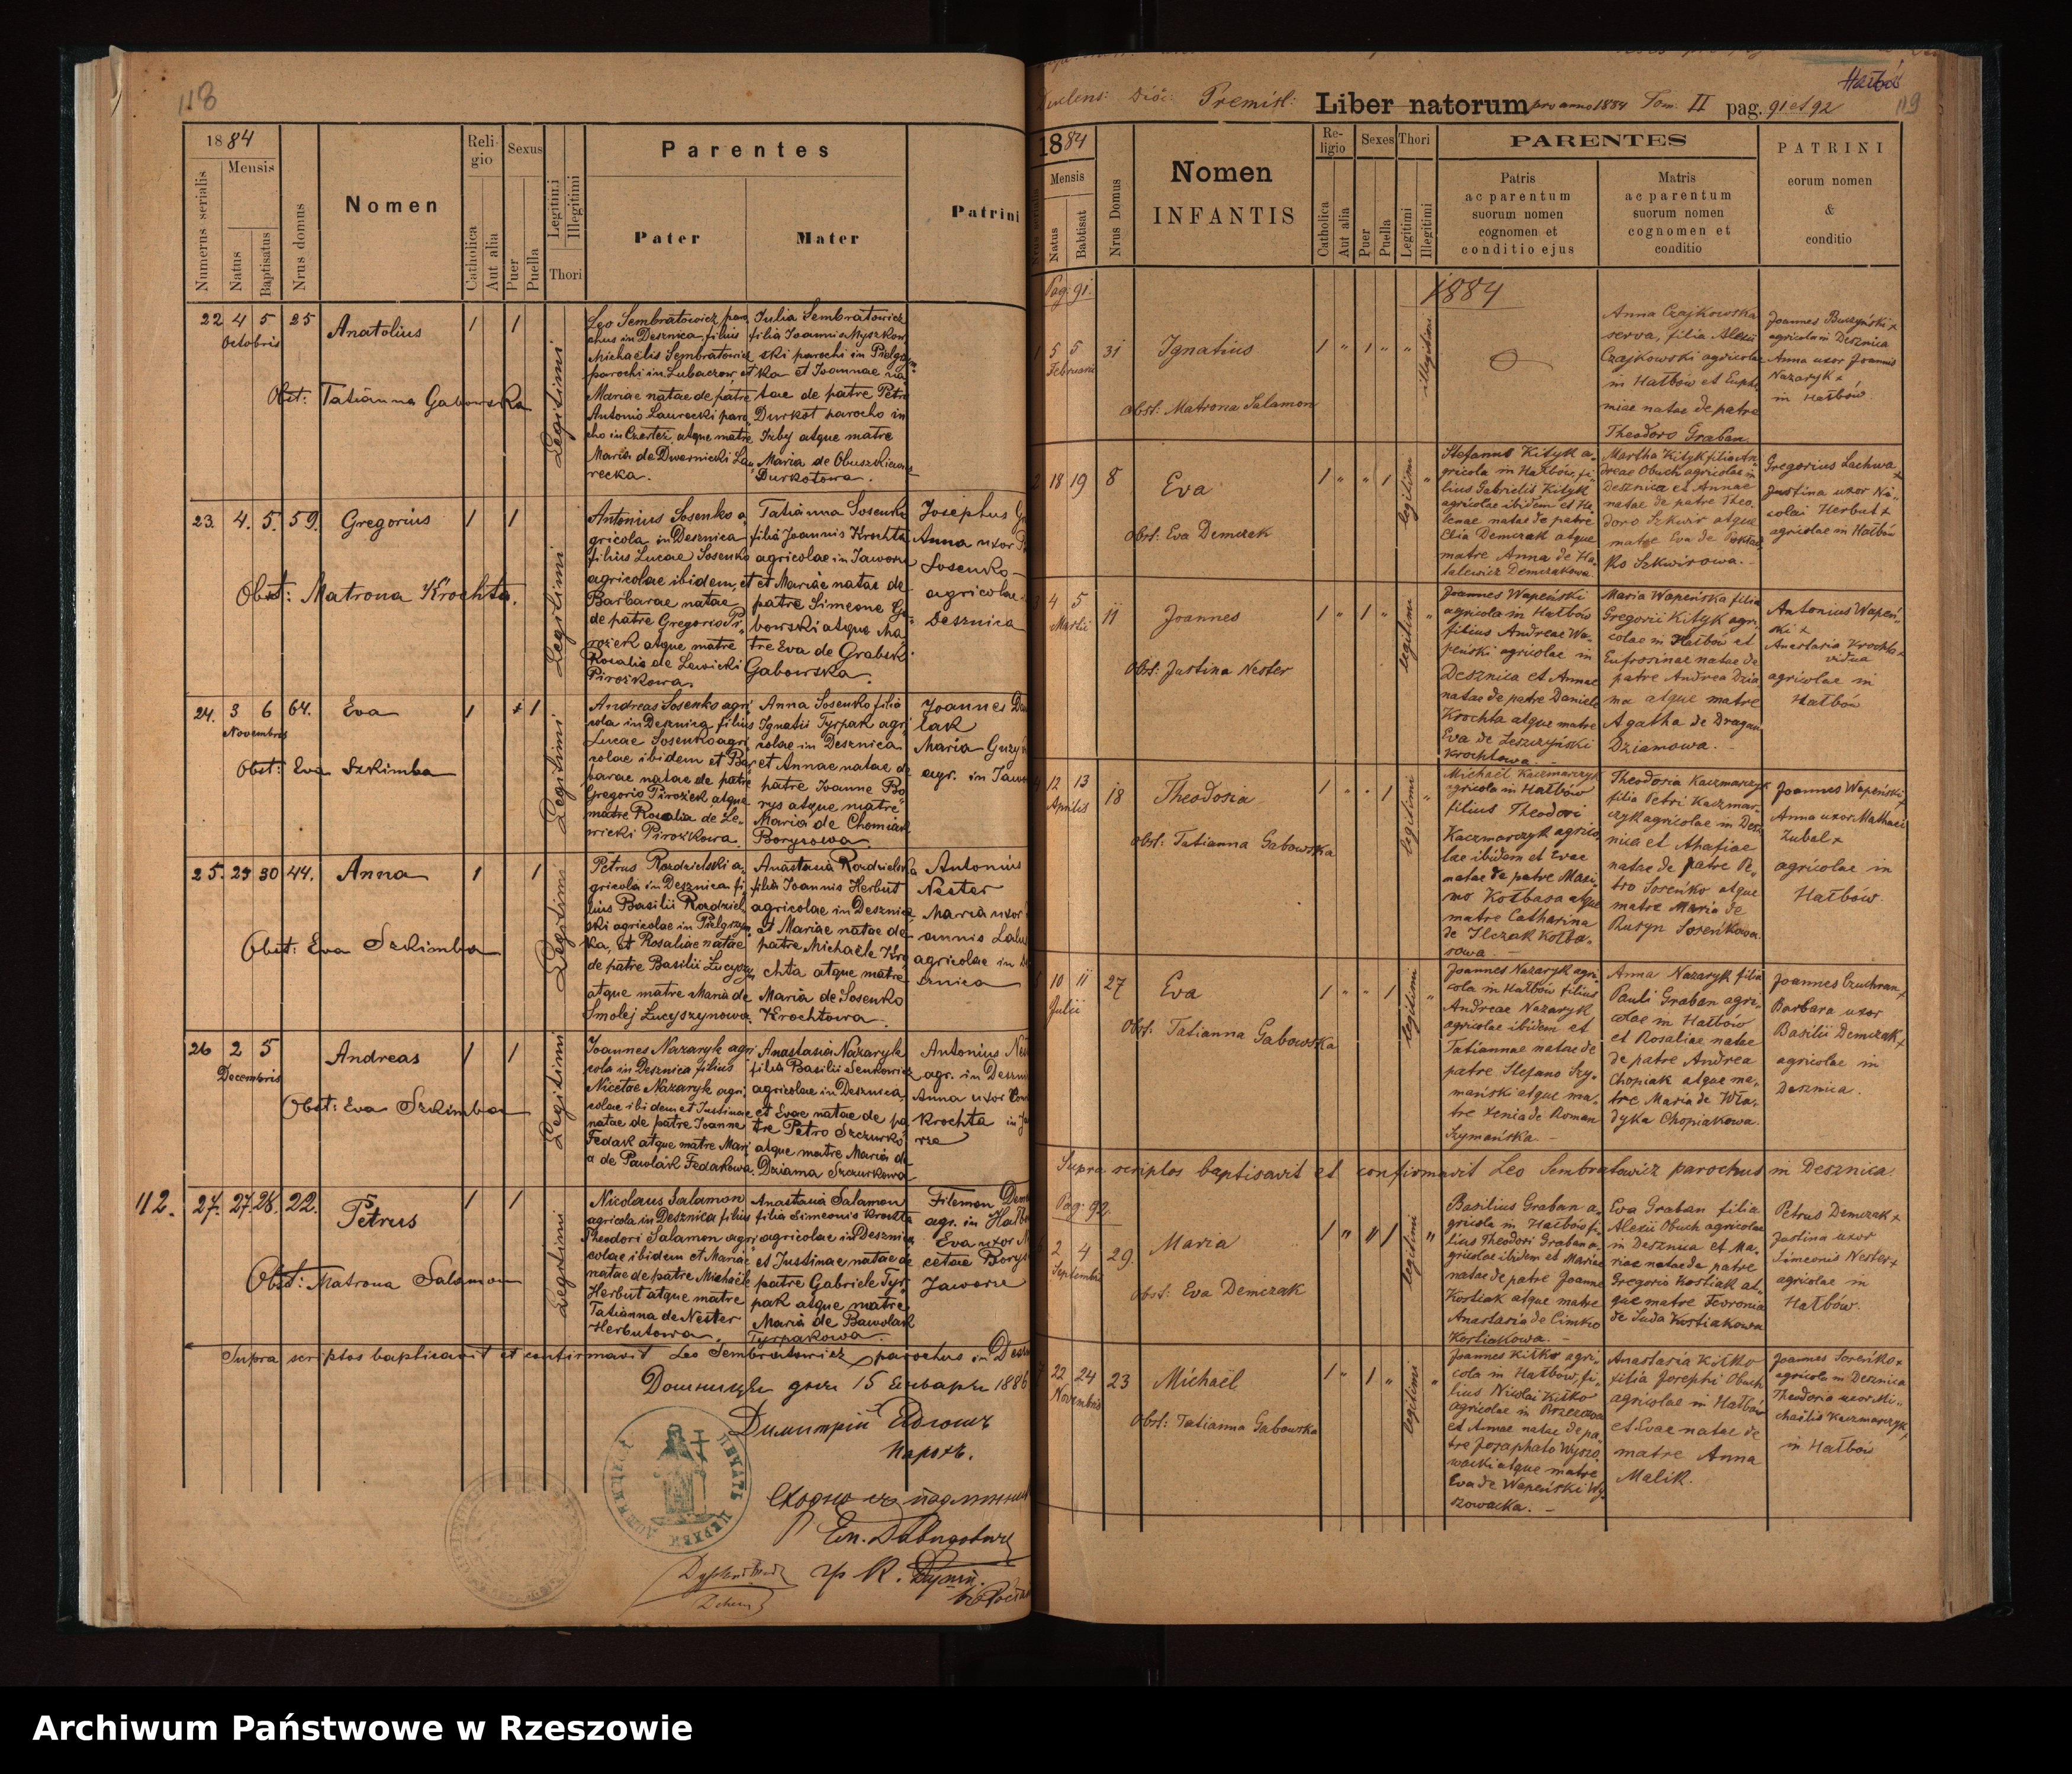 118
1884
Numerus serialis
Mensis
Natus
Baptisatus
Nrus domus
Nomen
Religio
Catholica
Aut alia
Sexus
Puer
Puella
Legitimi
Illegitimi
Thori
Parentes
Pater
Mater
Patrini
22 4 5 25
Octobris
Anatolius
Obst: Tatianna Gabowska
Legitimi
Leo Sembratowicz paro
chus in Desznica, filius
Michaelis Sembratowicz
parochi in Lubaczow, et
Mariae natae de patre
Antonio Laurecki paro
cho in Czertez, atque matre
Maria de Dwernicki Lau
recka.
Julia Sembratowicz
filia Joannis Myszkow
ski parochi in Pielgrzym
ka et Joannae na
tae de patre Petro
Durkot parocho in
Izby atque matre
Maria de Obuszkiewicz
Durkotowa.
23. 4. 5. 59.
Gregorius
Obst: Matrona Krochta.
Legitimi
Antonius Sosenko a
gricola in Desznica
filius Lucae Sosenko
agricolae ibidem, et
Barbarae natae
de patre Gregorio Pi
rożek atque matre
Rosalia de Lewicki
Pirożkowa.
Tatianna Sosenko
filia Joannis Krochta
agricolae in Jaworze
et Mariae natae de
patre Simeone Ga
bowski atque Ma
tre Eva de Grabski
Gabowska.
Josephus
Anna uxor
Sosenko
agricolae
Desznica
24. 3 6 64.
Novembris
Eva
Obst: Eva Szkimba
Legitimi
Andreas Sosenko agri
cola in Desznica filius
Lucae Sosenko agri
colae ibidem et Bar
barae natae de patre
Gregorio Pirożek atque
matre Rosalia de Le
wicki Pirożkowa.
Anna Sosenko filia
Ignatii Tyrpak agri
colae in Desznica
et Annae natae de
patre Joanne Bo
rys atque matre
Maria de Chomiak
Borysowa.
Joannes
lak
Maria
agr. in
25. 29 30 44.
Anna
Obst: Eva Szkimba
Legitimi
Petrus Rozdzielski a
gricola in Desznica fi
lius Basilii Rozdziel
ski agricolae in Pielgrzym
ka, et Rosaliae natae
de patre Basilii Lucyszyn
atque matre Maria de
Smolej Lucyszynowa.
Anastasia Rozdzielska
filia Joannis Herbut
agricolae in Desznica
et Mariae natae de
patre Michaele Kro
chta atque matre
Maria de Sosenko
Krochtowa.
Antonius
Nester
Maria uxor
annis
agricolae in
sznica
26 2 5
Decembris
Andreas
Obst: Eva Szkimba
Legitimi
Joannes Nazaryk agri
cola in Desznica filius
Nicetae Nazaryk agri
colae ibidem et Justinae
natae de patre Joanne
Fedak atque matre Mari
a de Pawlak Fedakowa.
Anastasia Nazaryk
filia Basilii Senkowicz
agricolae in Desznica
et Evae natae de pa
tre Petro Szczurko
atque matre Maria de
Dziama Szczurkowa
Antonius
agr. in
Anna uxor
Krochta in
rze
112. 27. 27. 28. 22.
Petrus
Obst: Matrona Salamon
Legitimi
Nicolaus Salamon
agricola in Desznica filius
Theodori Salamon agri
colae ibidem et Mariae
natae de patre Michaele
Herbut atque matre
Tatianna de Nester
Herbutowa.
Anastasia Salamon
filia Simeonis Krochta
agricolae in Desznica
et Justinae natae de
patre Gabriele Tyr
pak atque matre
Maria de Bawolak
Tyrpakowa.
Filemon
agr. in
Eva uxor
cetae
Jaworze
Supra scriptos baptisavit et confirmavit Leo Sembratowicz parochus in
15 1886
Парохъ.
Archiwum Państwowe w Rzeszowie
Hałbów
119
Premisl: Liber natorum pro anno 1884 Tom. II pag. 91 et 92
1884
Mensis
Natus
Babtisat
Nrus Domus
Nomen
INFANTIS
Religio
Catholica
Aut alia
Sexes
Puer
Puella
Thori
Legitimi
Illegitimi
PARENTES
Patris
ac parentum
suorum nomen
cognomen et
conditio ejus
Matris
ac parentum
suorum nomen
cognomen et
conditio
PATRINI
eorum nomen
&
conditio
Pag: 91.
1884
1 5 5 31
Februarii
Ignatius
Obst: Matrona Salamon
illegitimi
Anna Czajkowska
serva, filia Alexii
Czajkowski agricolae
in Hałbów et Euphe
miae natae de patre
Theodoro Graban.
Joannes
agricola in Desznica
Anna uxor Joannis
Nazaryk +
in Hałbów
2 18 19 8
Eva
Obst: Eva Demczak
legitimi
Stefanus Kityk a
gricola in Hałbów, fi
lius Gabrielis Kityk
agricolae ibidem et He
lenae natae de patre
Elia Demczak atque
matre Anna de Ha
talewicz Demczakowa.
Martha Kityk filia An
dreae Obuch agricolae in
Desznica et Annae
natae de patre Theo
doro Szkwir atque
matre Eva de
ko Szkwirowa.
Gregorius Lachwa
+
Justina uxor Ni
colai Herbut +
agricolae in Hałbów
3 4 5 11
Martii
Joannes
Obst: Justina Nester
legitimi
Joannes Wapeński
agricola in Hałbów
filius Andreae Wa
peński agricolae in
Desznica et Annae
natae de patre Daniele
Krochta atque matre
Eva de Leszczyński
Krochtowa
Maria Wapeńska filia
Gregorii Kityk agri
colae in Hałbów et
Eufrosinae natae de
patre Andrea Dzia
ma atque matre
Agatha de Dragan
Dziamowa.
Antonius Wapeń
ski +
Anastasia Krochta +
vidua
agricolae in
Hałbów
4 12 13 18
Aprilis
Theodosia
Obst: Tatianna Gabowska
legitimi
Michael Kaczmarczyk
agricola in Hałbów
filius Theodori
Kaczmarczyk agrico
lae ibidem et Evae
natae de patre Maxi
mo Kołbasa atque
matre Catharina
de Ilczak Kołba
sowa.
Theodosia Kaczmarczyk
filia Petri Kaczmar
czyk agricolae in Desz
nica et Ahafiae
natae de patre Pe
tro Soreńko atque
matre Maria de
Rusyn Soreńkowa.
Joannes Wapeński
+
Anna uxor Mathaei
Zubal +
agricolae in
Hałbów.
5 10 11 27
Julii
Eva
Obst: Tatianna Gabowska
legitimi
Joannes Nazaryk agri
cola in Hałbów filius
Andreae Nazaryk
agricolae ibidem et
Tatiannae natae de
patre Stefano Szy
mański atque ma
tre Xenia de Roman
Szymańska.
Anna Nazaryk filia
Pauli Graban agri
colae in Hałbów
et Rosaliae natae
de patre Andrea
Chopiak atque ma
tre Maria de Wła
dyka Chopiakowa.
Joannes Czuchran +
Barbara uxor
Basilii Demczak +
agricolae in
Desznica.
Supra scriptos baptisavit et confirmavit Leo Sembratowicz parochus in Desznica
Pag: 92.
2 4 29.
Septembris
Maria
Obst: Eva Demczak
legitimi
Basilius Graban a
gricola in Hałbów fi
lius Theodori Graban a
gricolae ibidem et Mariae
natae de patre Joanne
Kostiak atque matre
Anastasia de Cimko
Kostiakowa.
Eva Graban filia
Alexii Obuch agricolae
in Desznica et Ma
riae natae de patre
Gregorio Kostiak at
que matre Fevronia
de Juda Kostiakowa
Petrus Demczak +
Justina uxor
Simeonis Nester +
agricolae in
Hałbów.
7 22 24 23
Novembris
Michaël
Obst: Tatianna Gabowska
legitimi
Joannes Kitko agri
cola in Hałbów, fi
lius Nicolai Kitko
agricolae in Brzezowa
et Annae natae de pa
tre Josaphato Wyszo
wacki atque matre
Eva de Wapeński Wy
szowacka.
Anastasia Kitko
filia Josephi Obuch
agricolae in Hałbów
et Evae natae de
matre Anna
Malik.
Joannes Soreńko +
agricola in Desznica
Theodosia uxor Mi
chaëlis Kaczmarczyk
+
in Hałbów